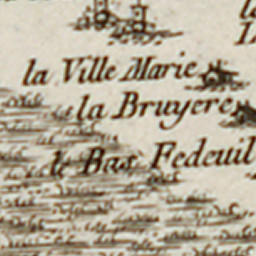 la Ville Marie
la Bruyere
le Bas Fedeuil